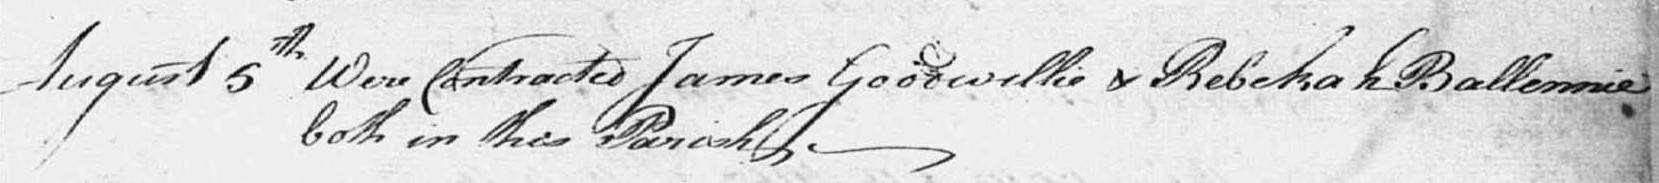 August 5th Were Contracted James Goodwillie & Rebekah Ballennie
both in this Parish